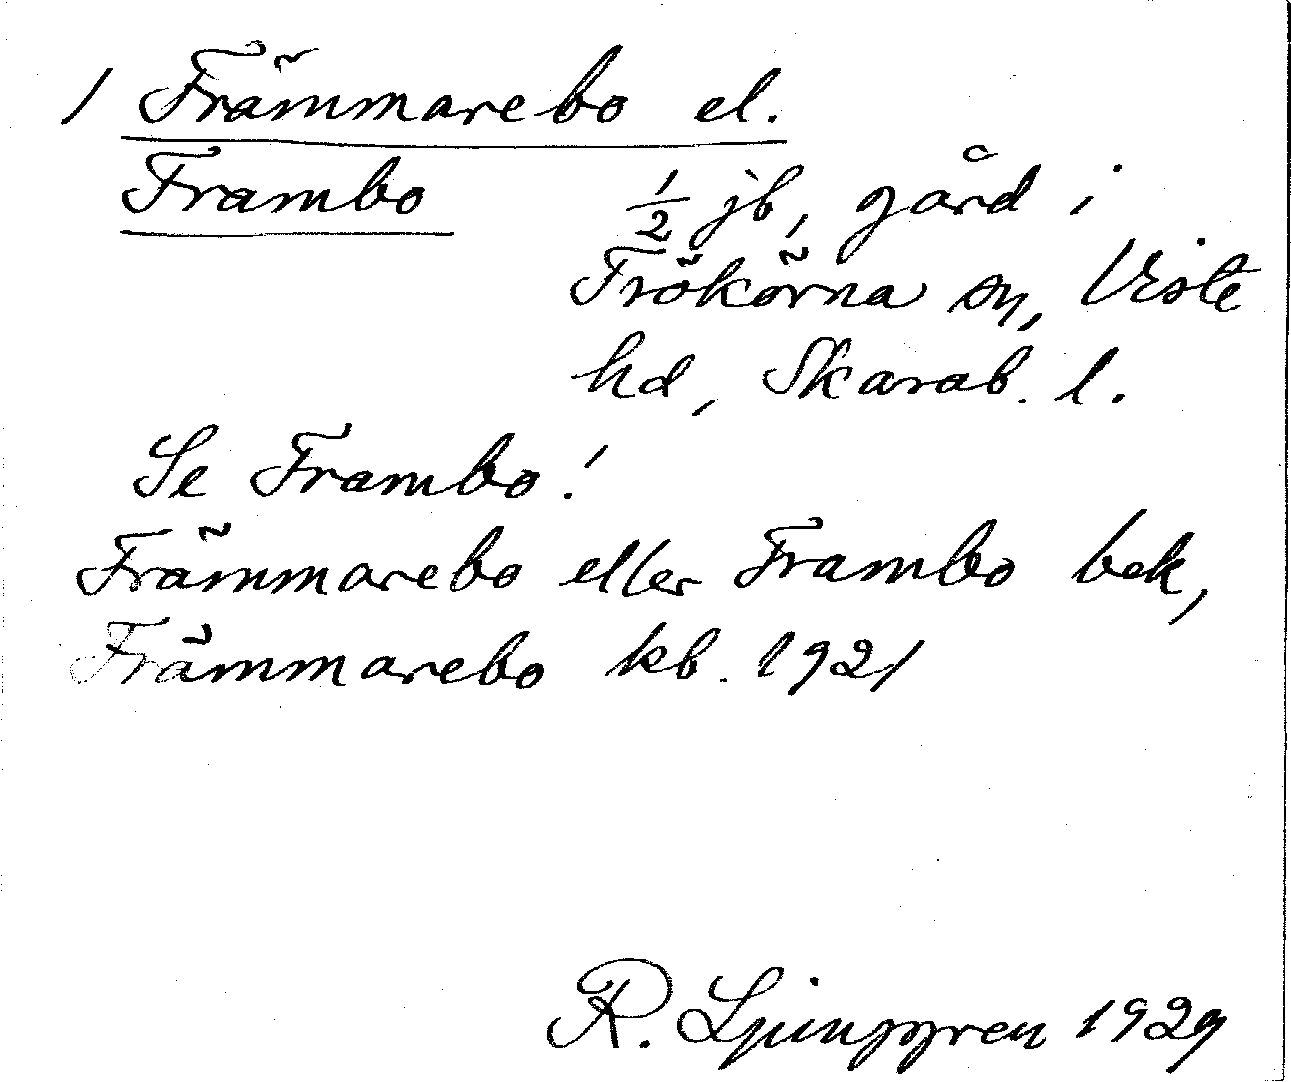 1 Främmarebo el.
Frambo ½ jb, gård i
Frökörna sn, Viste
hd, Skarab. l.
Se Frambo!
Främmarebo eller Frambo bek,
Främmarebo kb. 1921
R. Ljunggren 1929